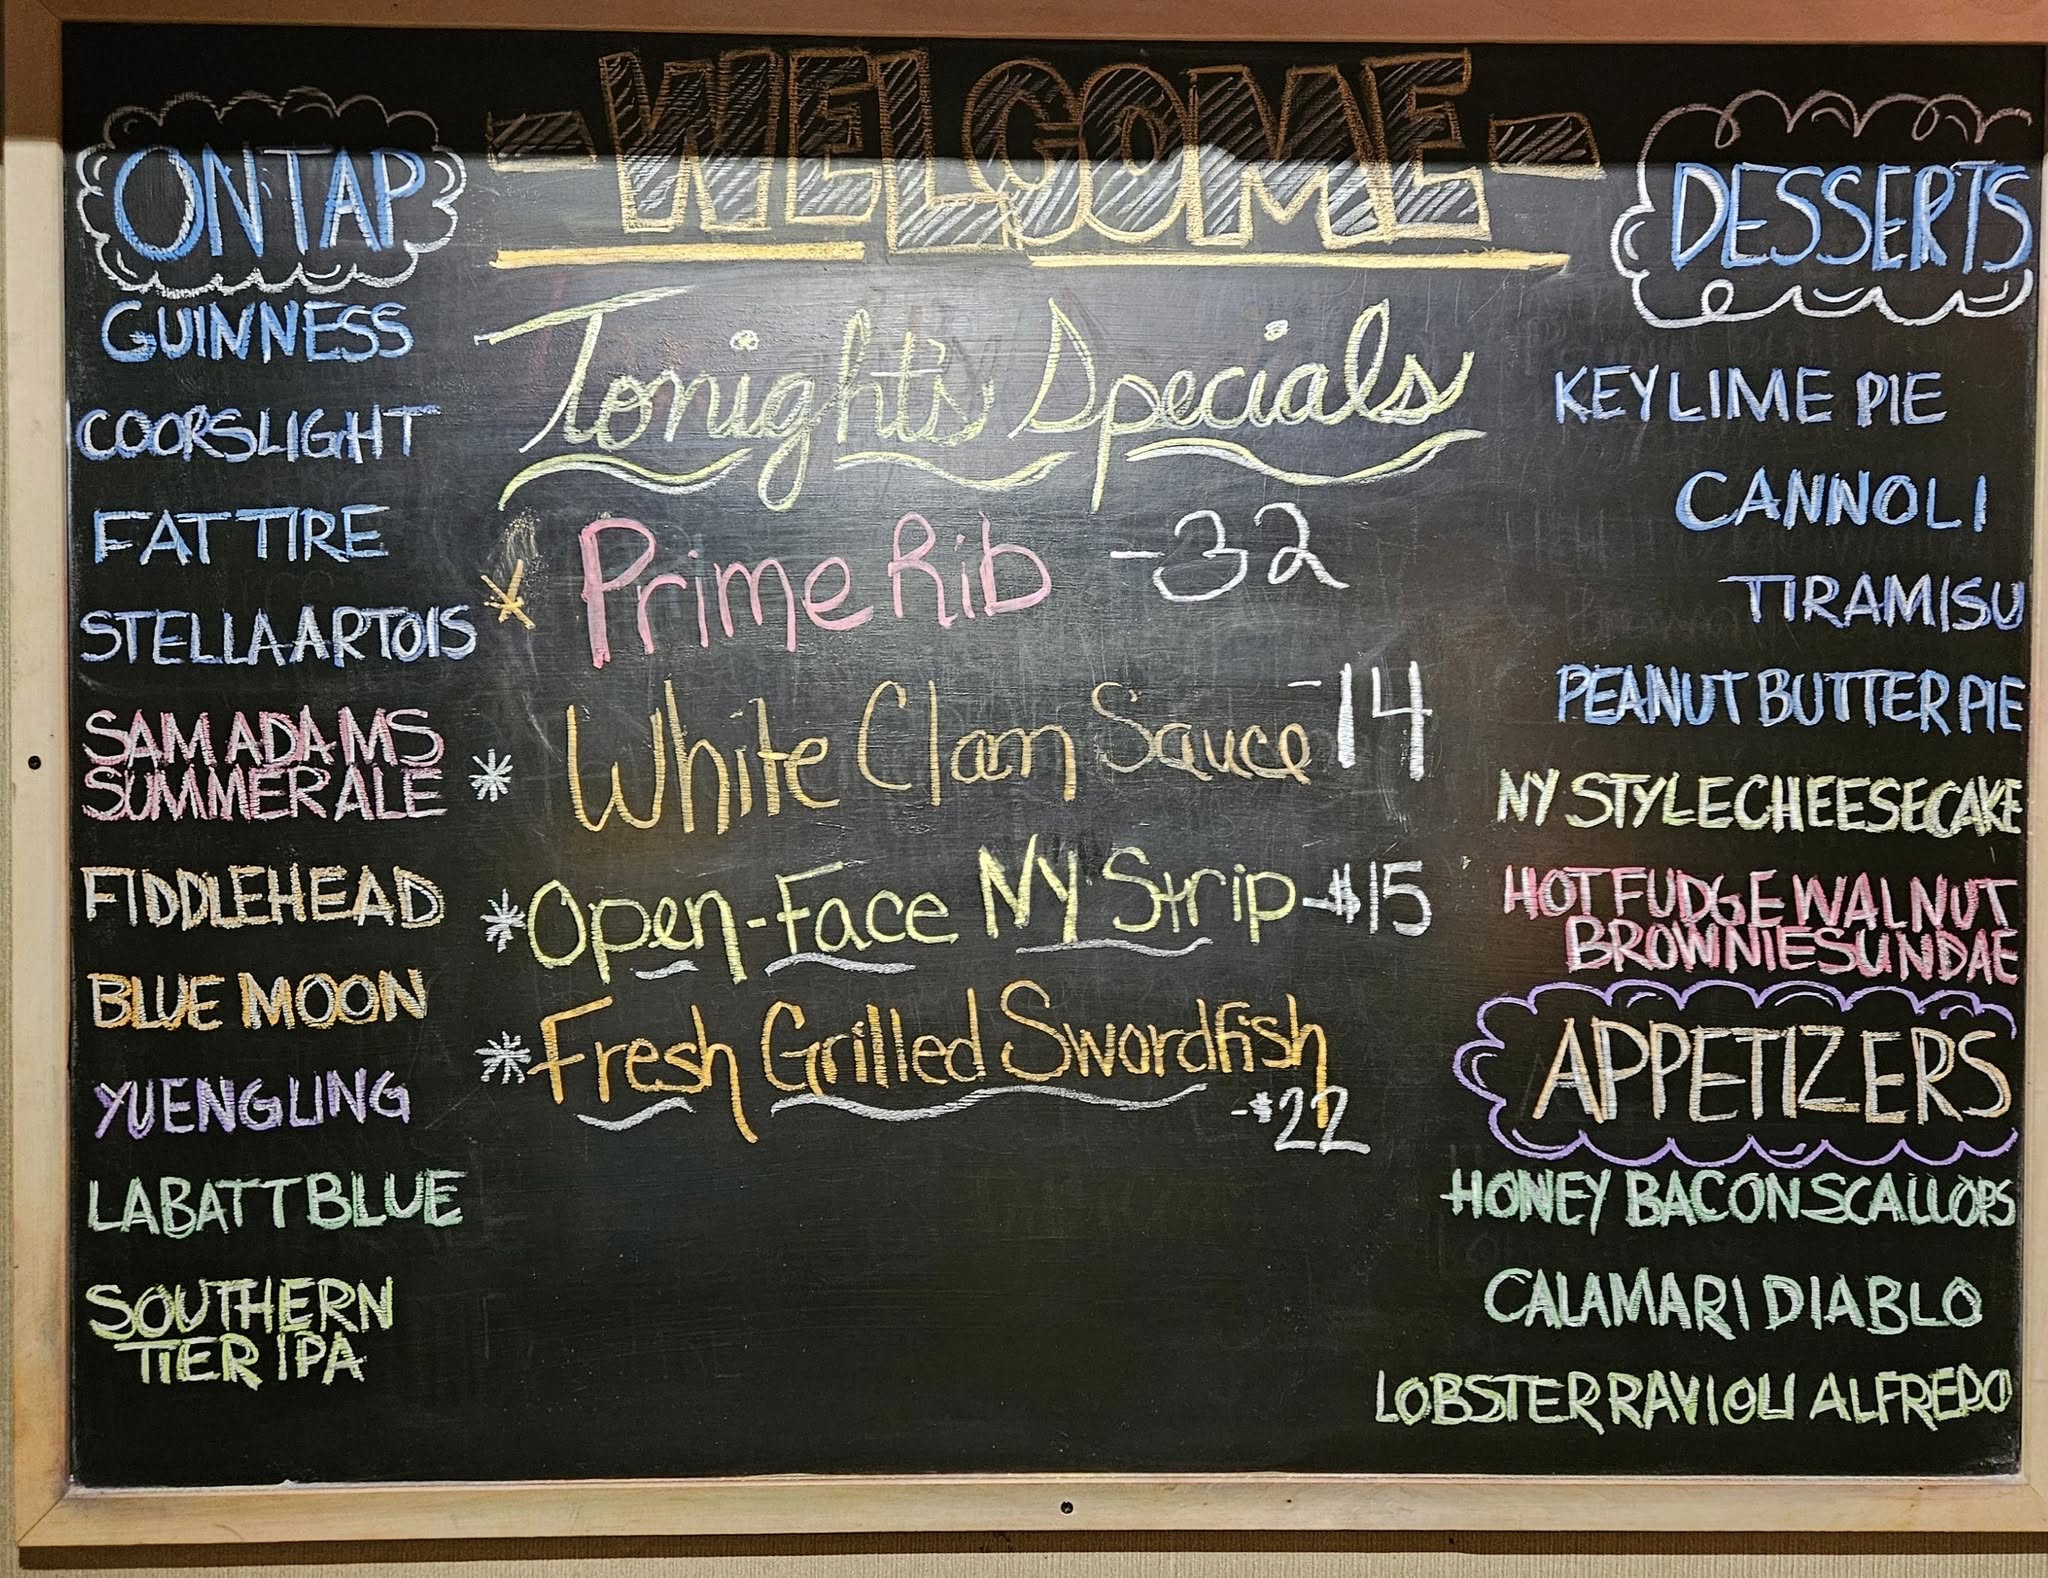 -WELCOME-
ON TAP
GUINNESS
COORS LIGHT
FAT TIRE
STELLA ARTOIS
SAM ADAMS
SUMMER ALE
FIDDLEHEAD
BLUE MOON
YUENGLING
LABATT BLUE
SOUTHERN
TIER IPA
Tonight's Specials
* Prime Rib -32
* White Clam Sauce -14
* Open-Face NY Strip -$15
* Fresh Grilled Swordfish
-$22
DESSERTS
KEY LIME PIE
CANNOLI
TIRAMISU
PEANUT BUTTER PIE
NY STYLE CHEESECAKE
HOT FUDGE WALNUT
BROWNIE SUNDAE
APPETIZERS
HONEY BACON SCALLOPS
CALAMARI DIABLO
LOBSTER RAVIOLI ALFREDO